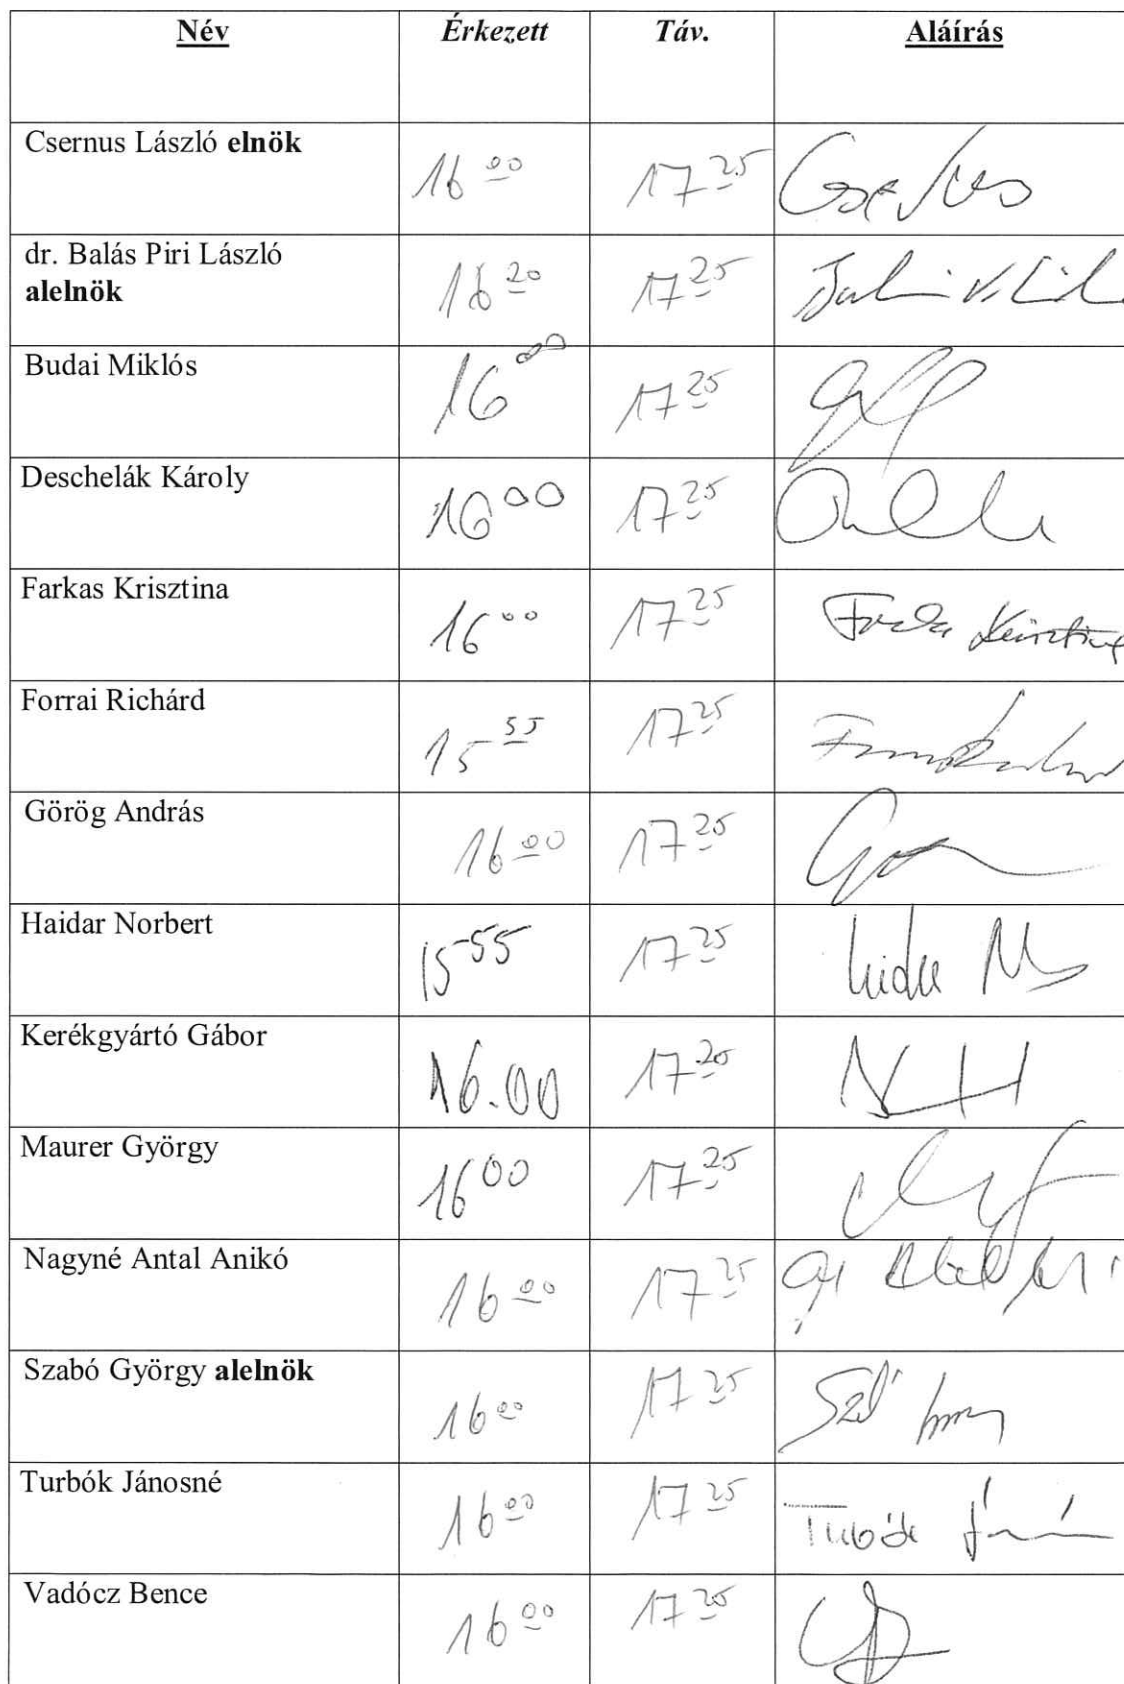 Név Érkezett Táv. Aláírás
Csernus László elnök 16 00 17 25
dr. Balás Piri László
alelnök 16 20 17 25
Budai Miklós 16 00 17 25
Deschelák Károly 16 00 17 25
Farkas Krisztina 16 00 17 25 Krisztina
Forrai Richárd 15 55 17 25
Görög András 16 00 17 25
Haidar Norbert 15 55 17 25
Kerékgyártó Gábor 16.00 17 25
Maurer György 16 00 17 25
Nagyné Antal Anikó 16 00 17 25
Szabó György alelnök 16 00 17 25
Turbók Jánosné 16 00 17 25
Vadócz Bence 16 00 17 25